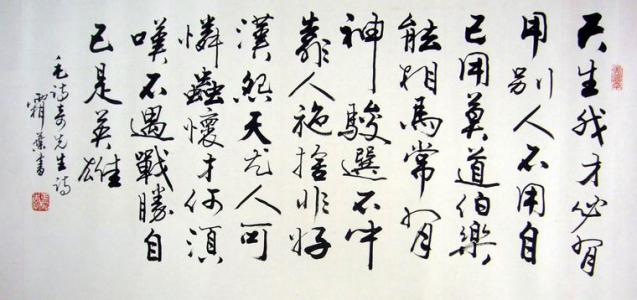 天生我才必有
用别人不用自
己用莫道伯樂
能相馬常有
神駿選不中
靠人施捨非好
漢怨天尤人可
憐蟲懷才何須
嘆不遇戰勝自
己是英雄
毛詩奇先生詩
霜葉書